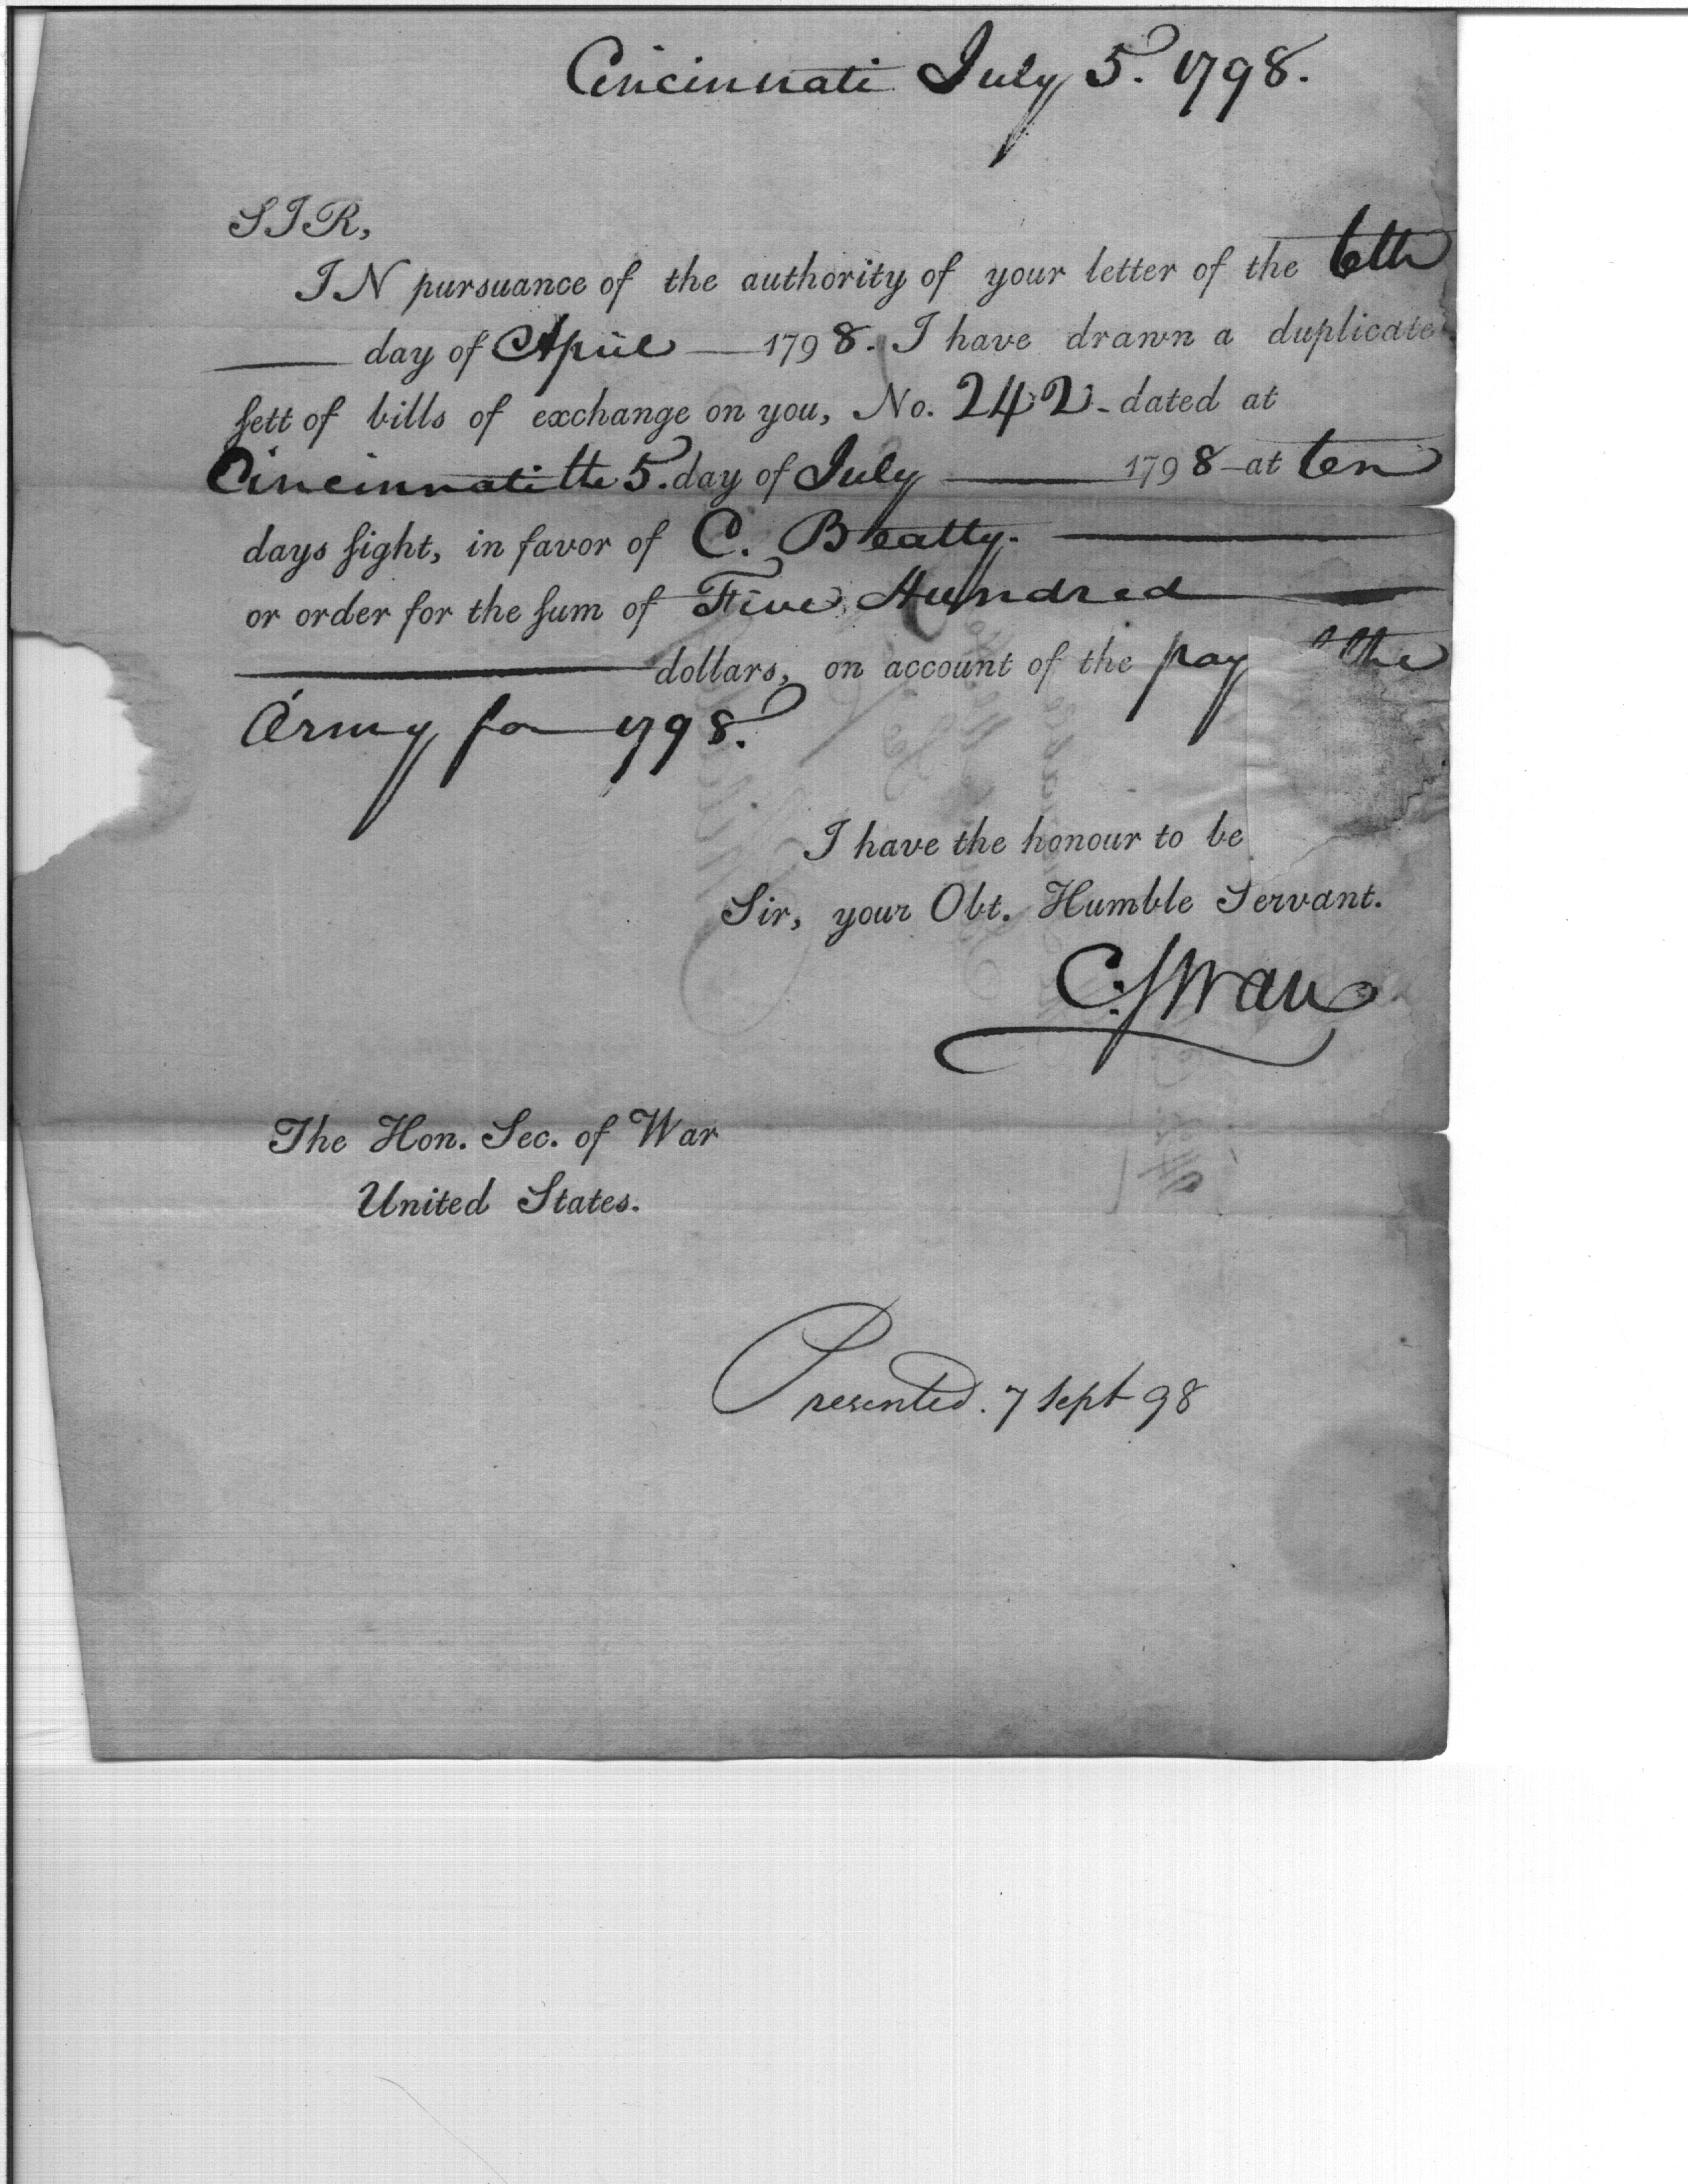 Cincinnati July 5. 1798.
SIR,
IN pursuance of the authority of your letter of the 6th
day of April 1798. I have drawn a duplicate
sett of bills of exchange on you, No. 242 - dated at
Cincinnati the 5. day of July 1798 - at ten
days sight, in favor of C. Beatty.
or order for the sum of Five Hundred
dollars, on account of the pay the
Army for 1798.
I have the honour to be
Sir, your Obt. Humble Servant.
C. Swan
The Hon. Sec. of War
United States.
Presented. 7 Sept 98